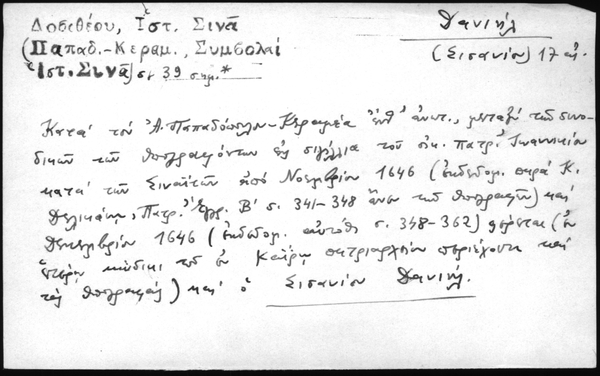 Δοσιθέου, Ἱστ. Σινᾶ
Δανιήλ
(Παπαδ.-Κεραμ., Συμβολαί
(Σισανίου) 17 αἰ.
Ἱστ. Σινᾶ) σ 39 σημ.*
Κατὰ τὸν Ἀ. Παπαδόπουλον-Κεραμέα ἔνθ' ἀνωτ., μεταξὺ τῶν συνο-
δικῶν τῶν ὑπογραφόντων εἰς σιγίλλια τοῦ οἰκ. πατρ. Ἰωαννικίου
κατὰ τῶν Σιναϊτῶν ἀπὸ Νοεμβρίου 1646 (ἐκδεδομ. παρὰ Κ.
Δελικάνη, Πατρ. Ἔγγρ. Β' σ. 341-348 ἄνευ τῶν ὑπογραφῶν) καὶ
Δεκεμβρίου 1646 (ἐκδεδομ. αὐτόθι σ. 348-362) φέρεται (ἐν
ἑτέρῳ κώδικι τοῦ ἐν Καΐρῳ πατριαρχείου περιέχοντι καὶ
τὰς ὑπογραφάς) καὶ ὁ Σισανίου Δανιήλ.